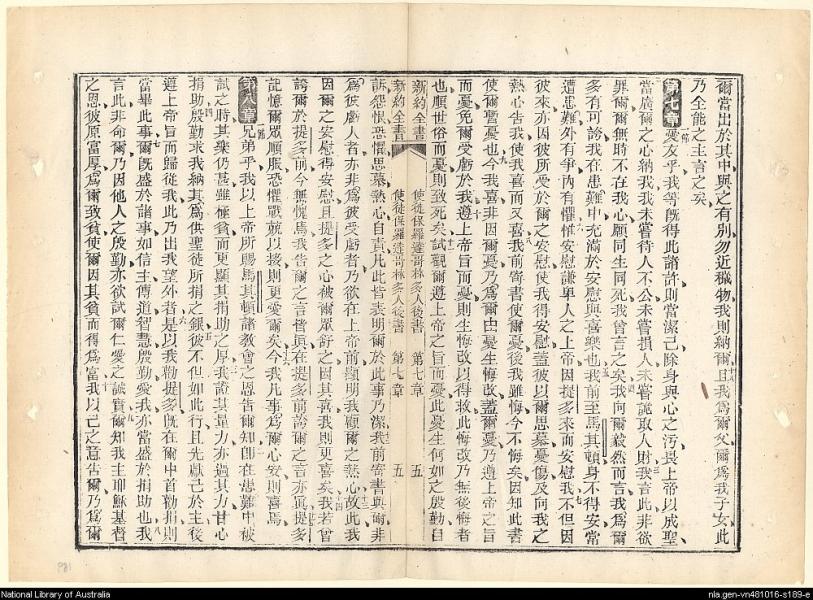 爾當出於其中與之有別勿近穢物我則納爾且我爲爾父爾爲我子女此
乃全能之主言之矣
第七章愛友乎我等旣得此諸許則當潔己除身與心之汚畏上帝以成聖
當廣爾之心納我我未嘗待人不公未嘗損人未嘗詭取人財我言此非欲
罪爾爾無時不在我心願同生同死我曾言之矣我向爾毅然而言我爲爾
多有可誇我在患難中充滿於安慰與喜樂也我前至馬其頓身不得安常
遭患難外有爭內有懼惟安慰謙卑人之上帝因提多來而安慰我不但因
彼來亦因彼所受於爾之安慰使我得安慰蓋彼以爾思慕憂傷及向我之
熱心告我使我喜而又喜我前寄書使爾憂後我雖悔今不悔矣因知此書
使爾暫憂也今我喜非因爾憂乃爲爾由憂生悔改蓋爾憂乃遵上帝之旨
而憂免爾受虧於我遵上帝旨而憂則生悔改以得救此悔改乃無後悔者
也順世俗而憂則致死矣試觀爾遵上帝之旨而憂此憂生何如之殷勤自
新約全書 使徒保羅達哥林多人後書 第七章 五
新約全書 使徒保羅達哥林多人後書 第七章 五
訴怨恨恐懼思慕熱心自責凡此皆表明爾於此事乃潔我前寄書與爾非
爲彼虧人者亦非爲彼受虧者乃欲在上帝前顯明我顧爾之熱心故此我
因爾之安慰得安慰且提多之心被爾眾舒之因其喜我則更喜矣我若曾
誇爾於提多前今無愧焉我告爾之言皆眞在提多前誇爾之言亦眞提多
記憶爾眾順服恐懼戰兢以接則更愛爾矣今我凡事爲爾心安則喜焉
第八章兄弟乎我以上帝所賜馬其頓諸敎會之恩告爾知卽在患難中被
試之時其樂仍甚雖極貧而更顯其捐助之厚我證其量力亦過其力甘心
捐助殷勤求我納其爲供聖徒所捐之銀彼不但如此行且先獻己於主後
遵上帝旨而歸從我此乃出我望外者是以我勸提多旣在爾中首勸捐則
當畢此事爾旣盛於諸事如信主傳道智慧殷勤愛我亦當盛於捐助也我
言此非命爾乃因他人之殷勤亦欲試爾仁愛之誠實爾知我主耶穌基督
之恩彼原富厚爲爾致貧使爾因其貧而得爲富我以己之意告爾乃爲爾
181
National Library of Australia
nla.gen-vn481016-s189-e